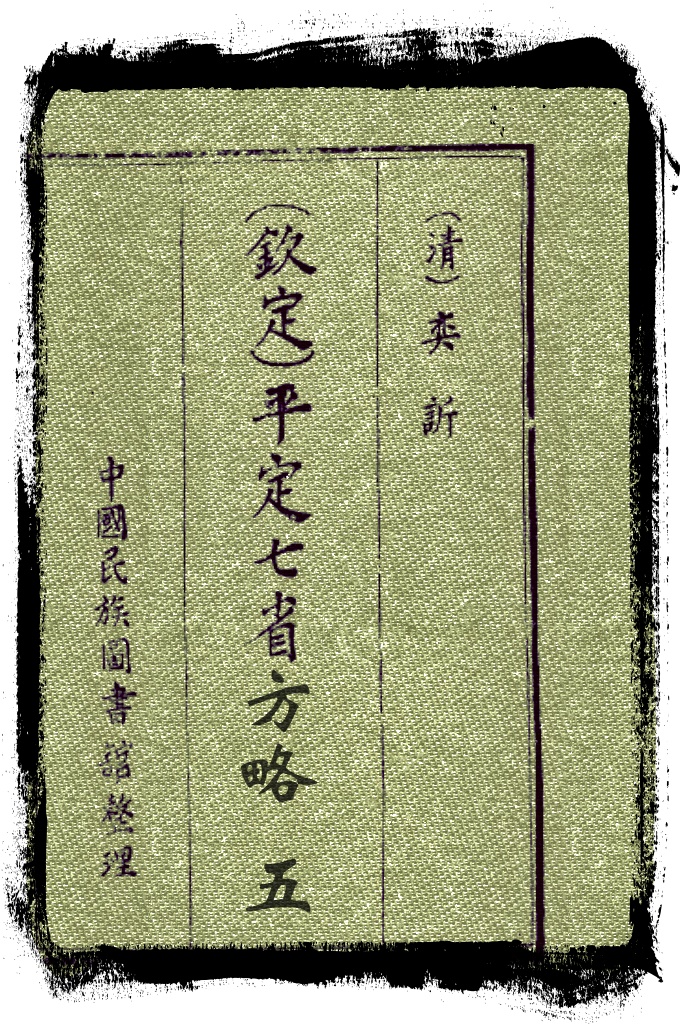 （清）奕訢
（欽定）平定七省方略 五
中國民族圖書館整理